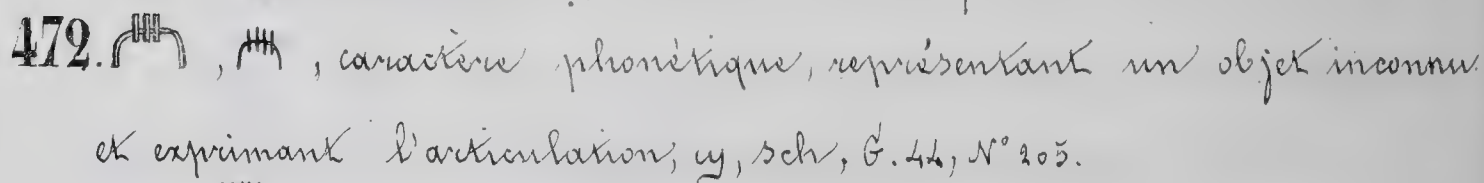 472. , , caractère phonétique, représentant un objet inconnu
et exprimant l'articulation, ϣ, sch, G. 44, N° 205.